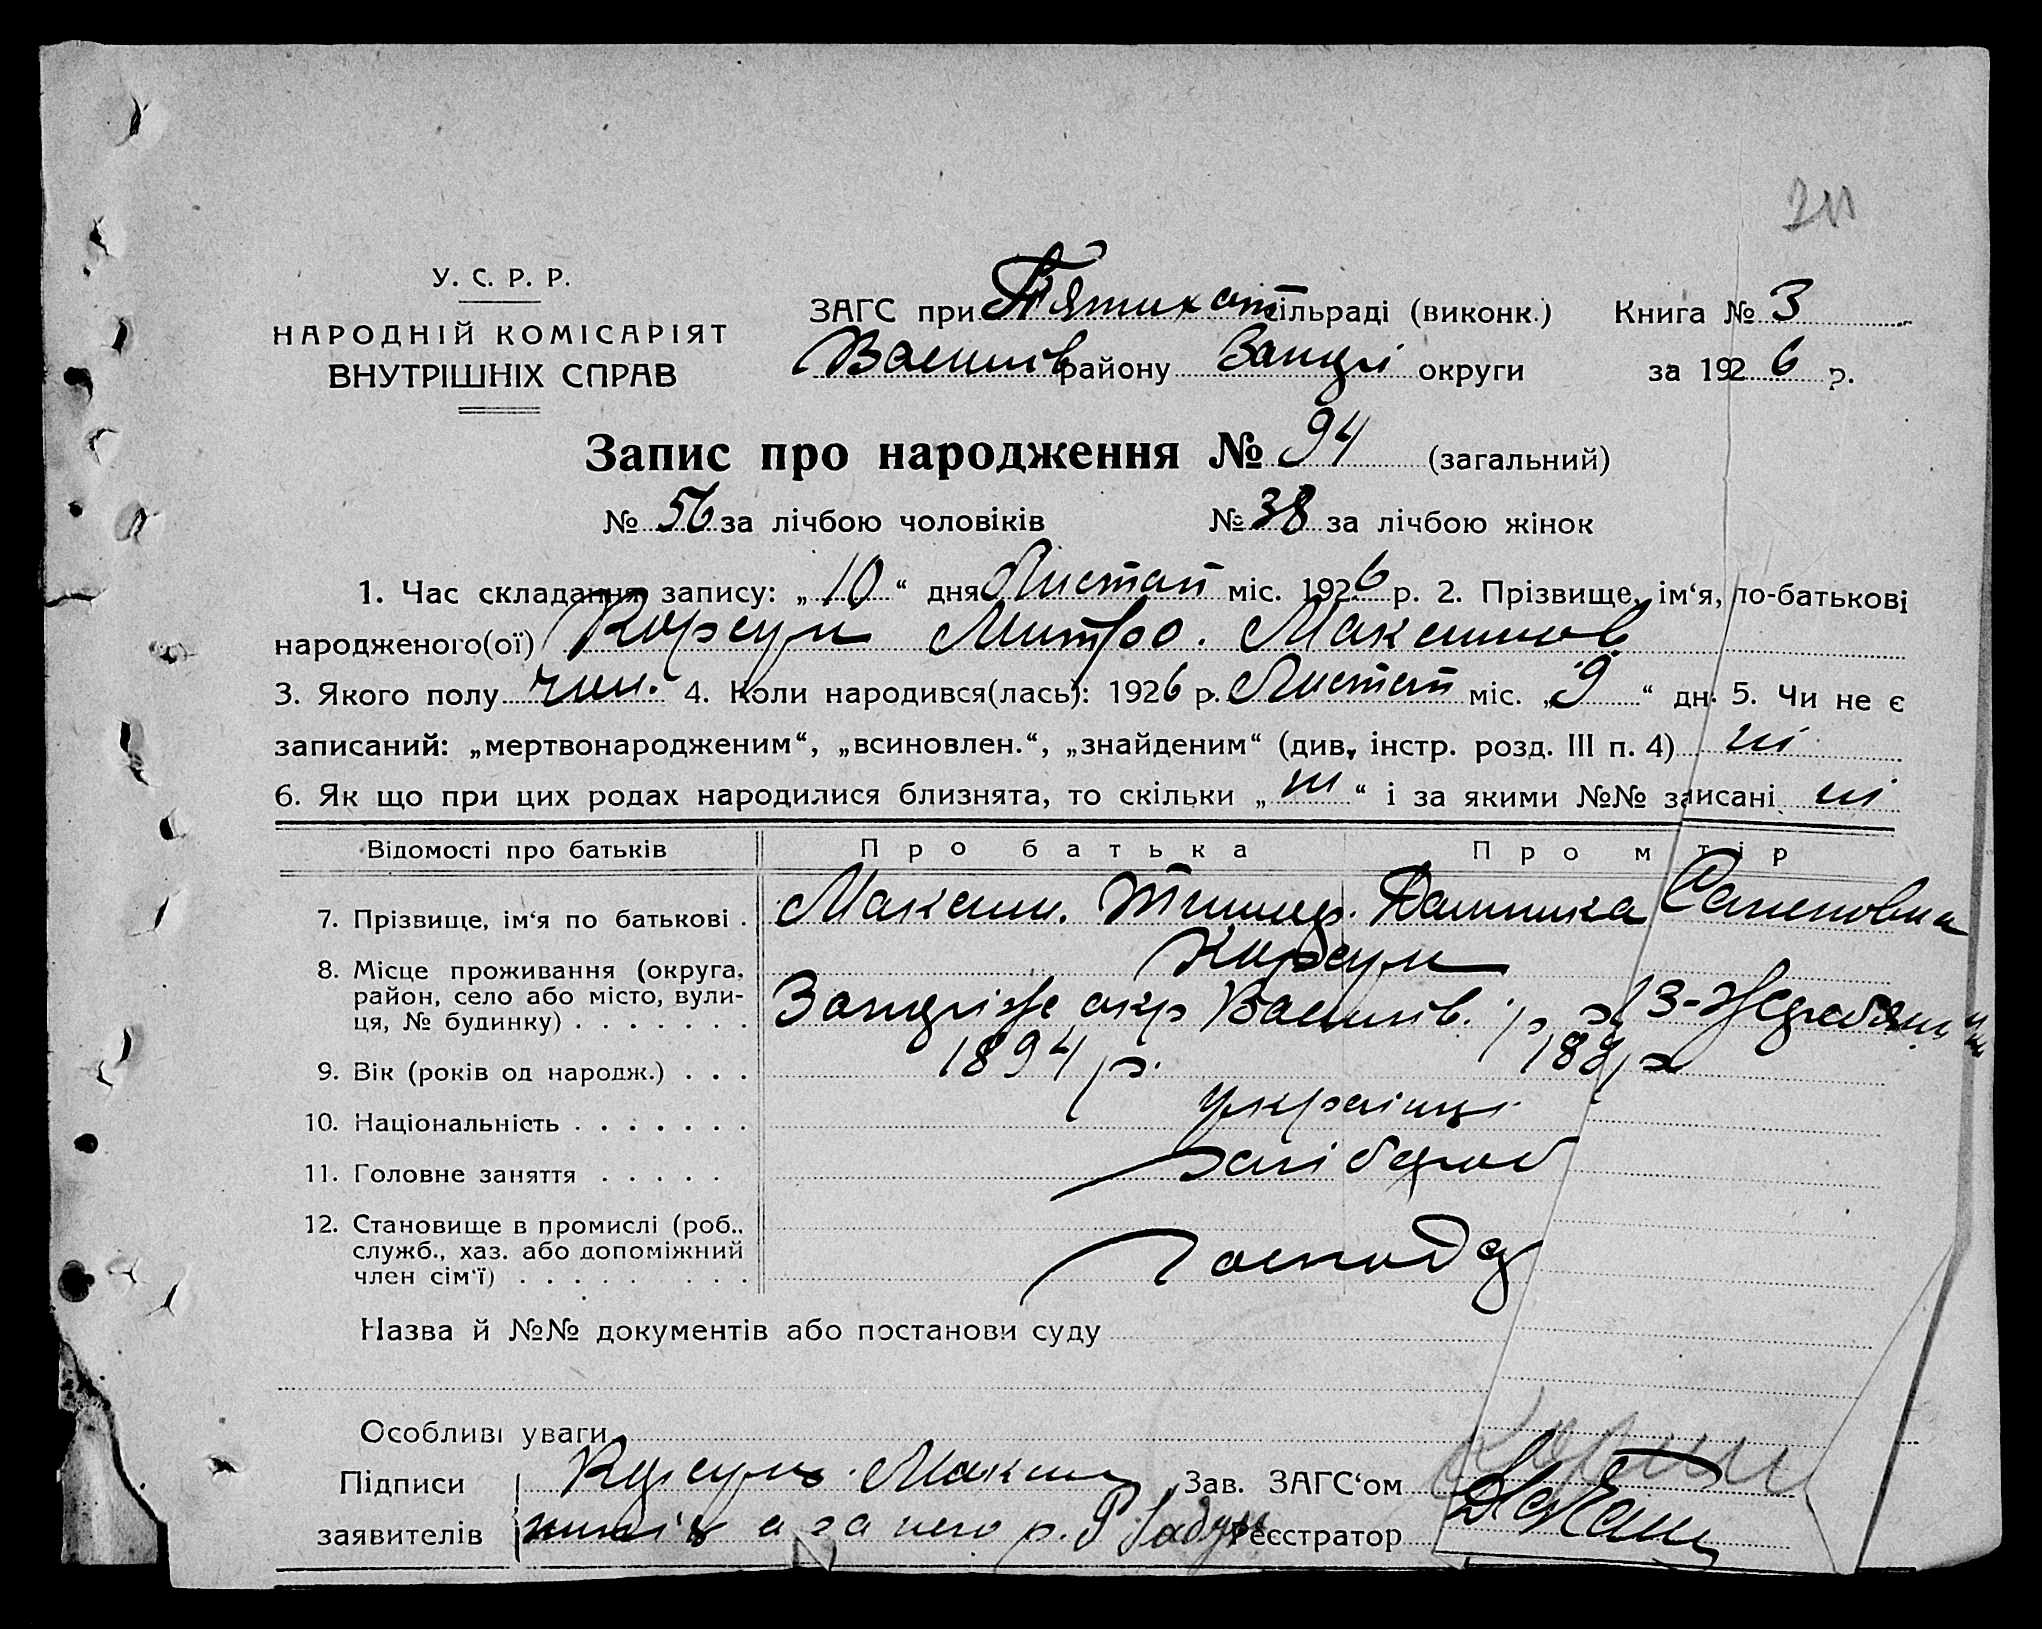 У. С. Р. Р.
НАРОДНІЙ КОМІСАРІЯТ
ВНУТРІШНІХ СПРАВ
ЗАГС при Пятихат сільраді (виконк.) Книга № 3
Василів району Запоріз округи за 1926 р.
Запис про народження № 94 (загальний)
№ 56 за лічбою чоловіків № 38 за лічбою жінок
1. Час складання запису: „10“ дня Листоп міс. 1926 р. 2. Прізвище, ім‘я, по-батькові
народженого(ої) Корсун Митро. Максимов
3. Якого полу чол. 4. Коли народився(лась): 1926 р. Листоп міс. „9“ дн. 5. Чи не є
записаний: „мертвонародженим“, „всиновлен.“, „знайденим“ (див. інстр. розд. III п. 4) ні
6. Як що при цих родах народилися близнята, то скільки „ні“ і за якими №№ записані ні
Відомості про батьків Про батька Про матір
7. Прізвище, ім‘я по батькові . Максим. Домника Семеновна
Корсун
8. Місце проживання (округа,
район, село або місто, вули-
ця, № будинку) . . . . . . . Запоріж окр Василів. р
9. Вік (років од народж.) . . . 1894 р.
10. Національність . . . . . . . українці
11. Головне заняття . . . . . хлібороб
12. Становище в промислі (роб.,
служб., хаз. або допоміжний
член сім‘ї) . . . . . . . . . Господар
Назва й №№ документів або постанови суду
Особливі уваги
Підписи Корсун Максим Зав. ЗАГС‘ом
заявителів а за него р. Реєстратор